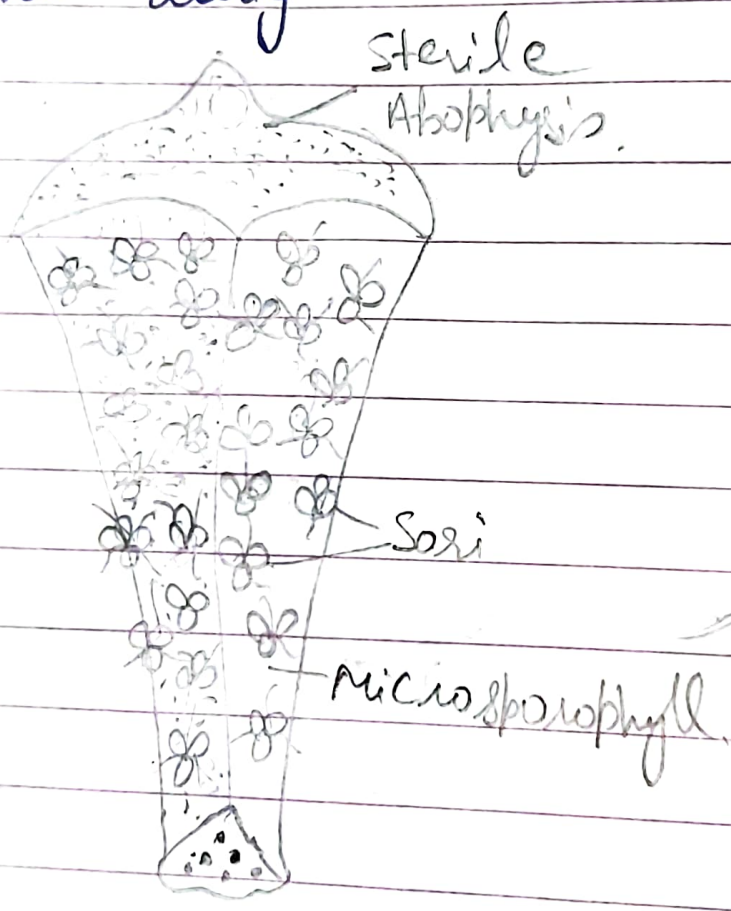 Sterile
Apophysis.
Sori
Microsporophyll.